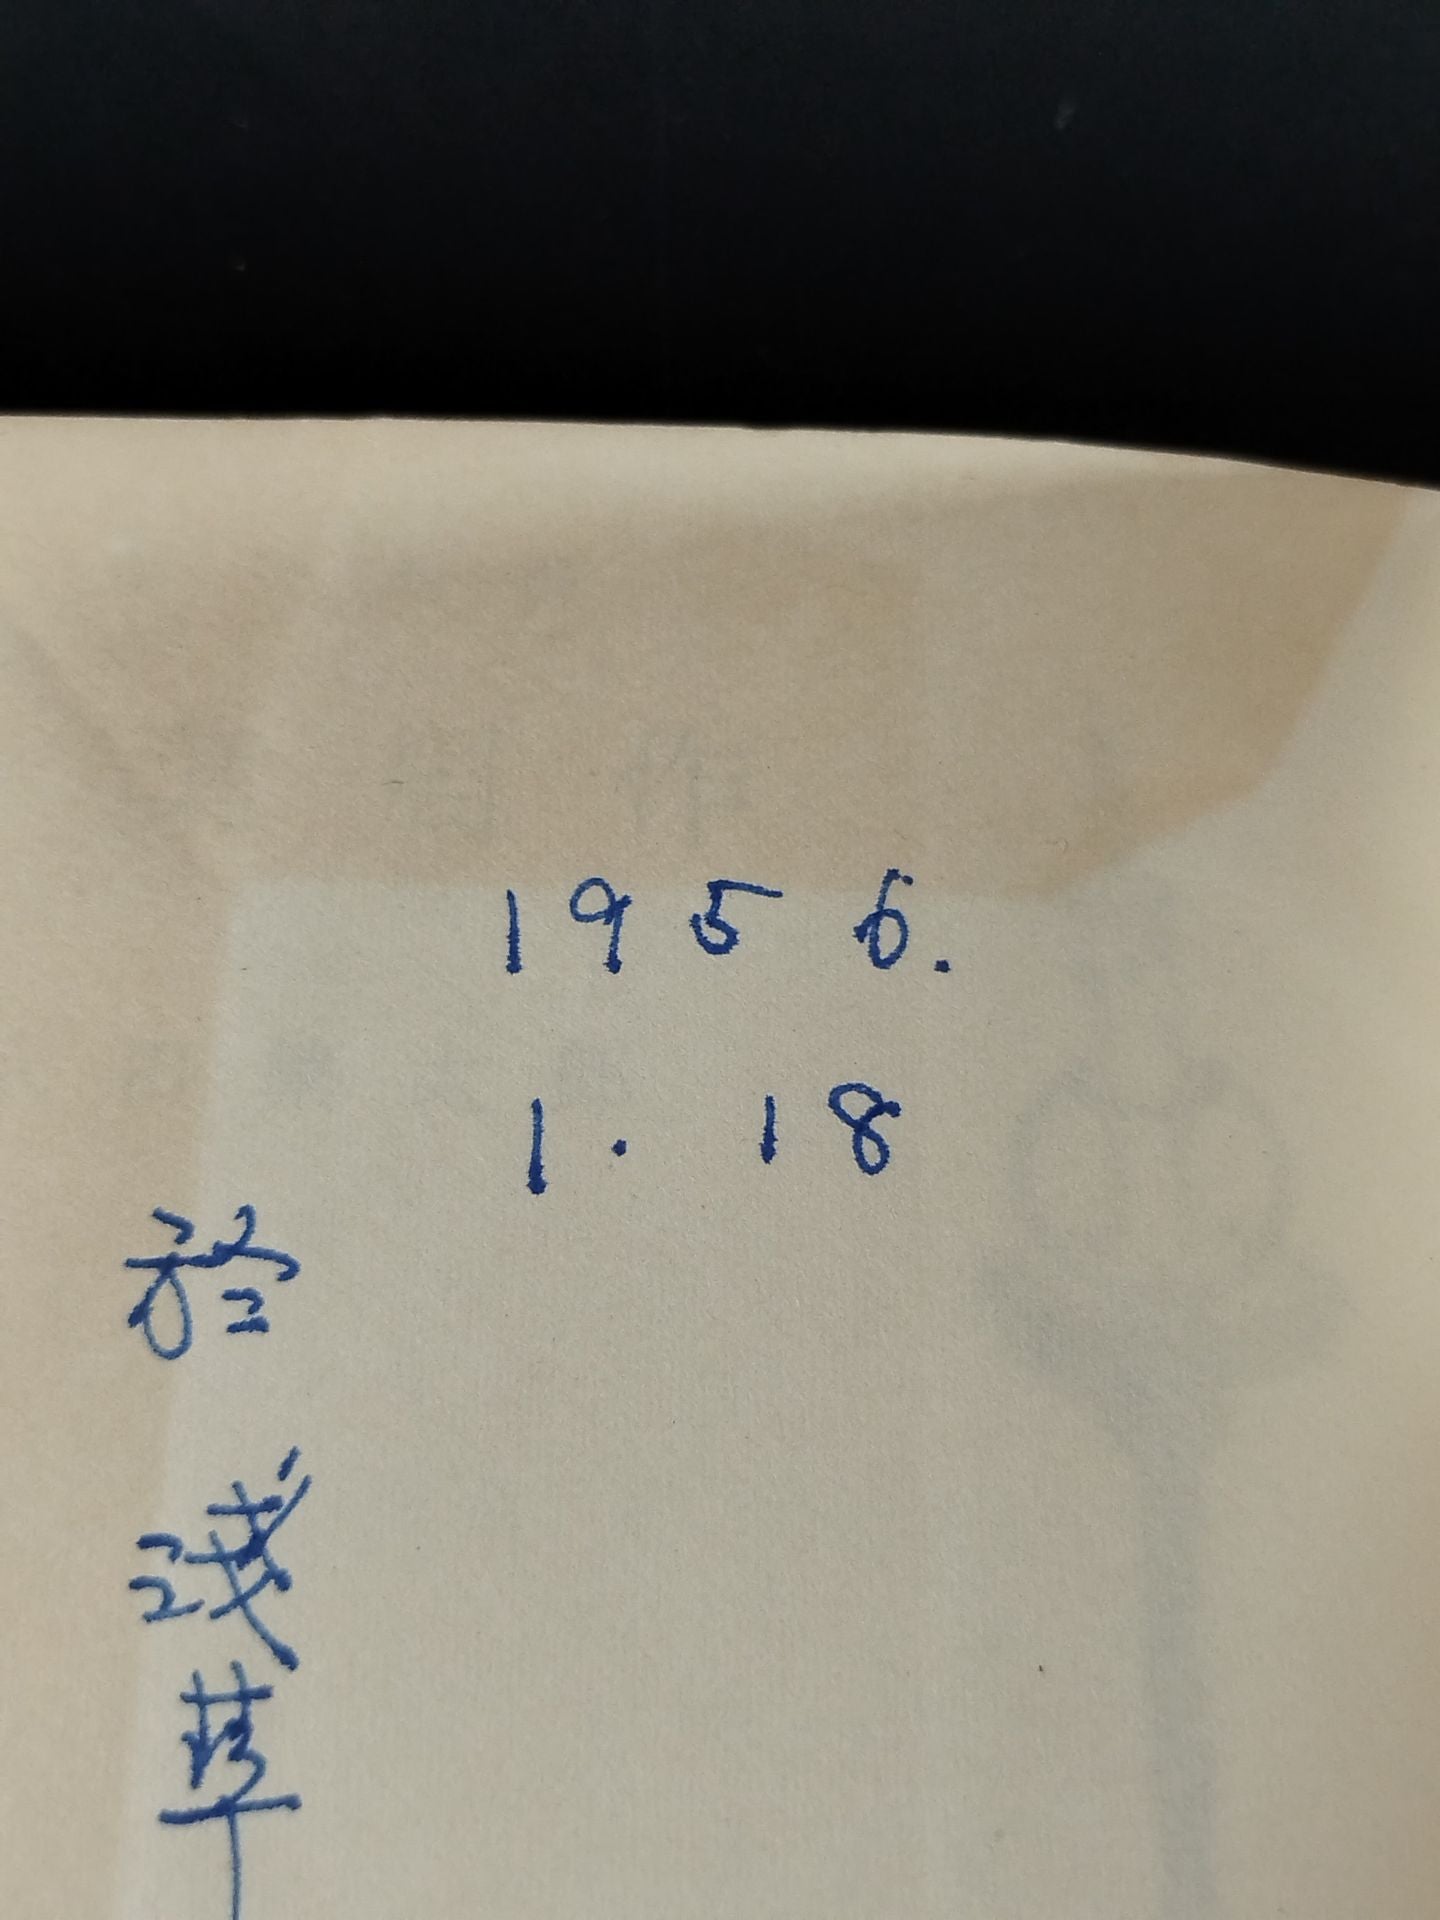 1956.
1.18
於
浅草